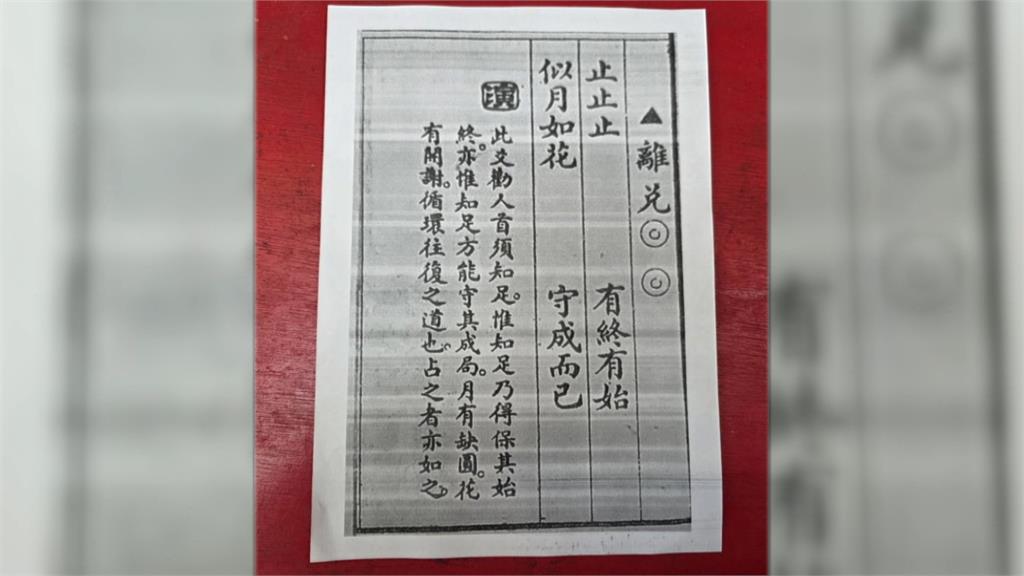 ▲離兌◎◎
止止止 有終有始
似月如花 守成而已
演
此爻勸人首須知足。惟知足乃得保其始
終。亦惟知足方能守其成局。月有缺圓。花
有開謝。循環往復之道也。占之者亦如之。